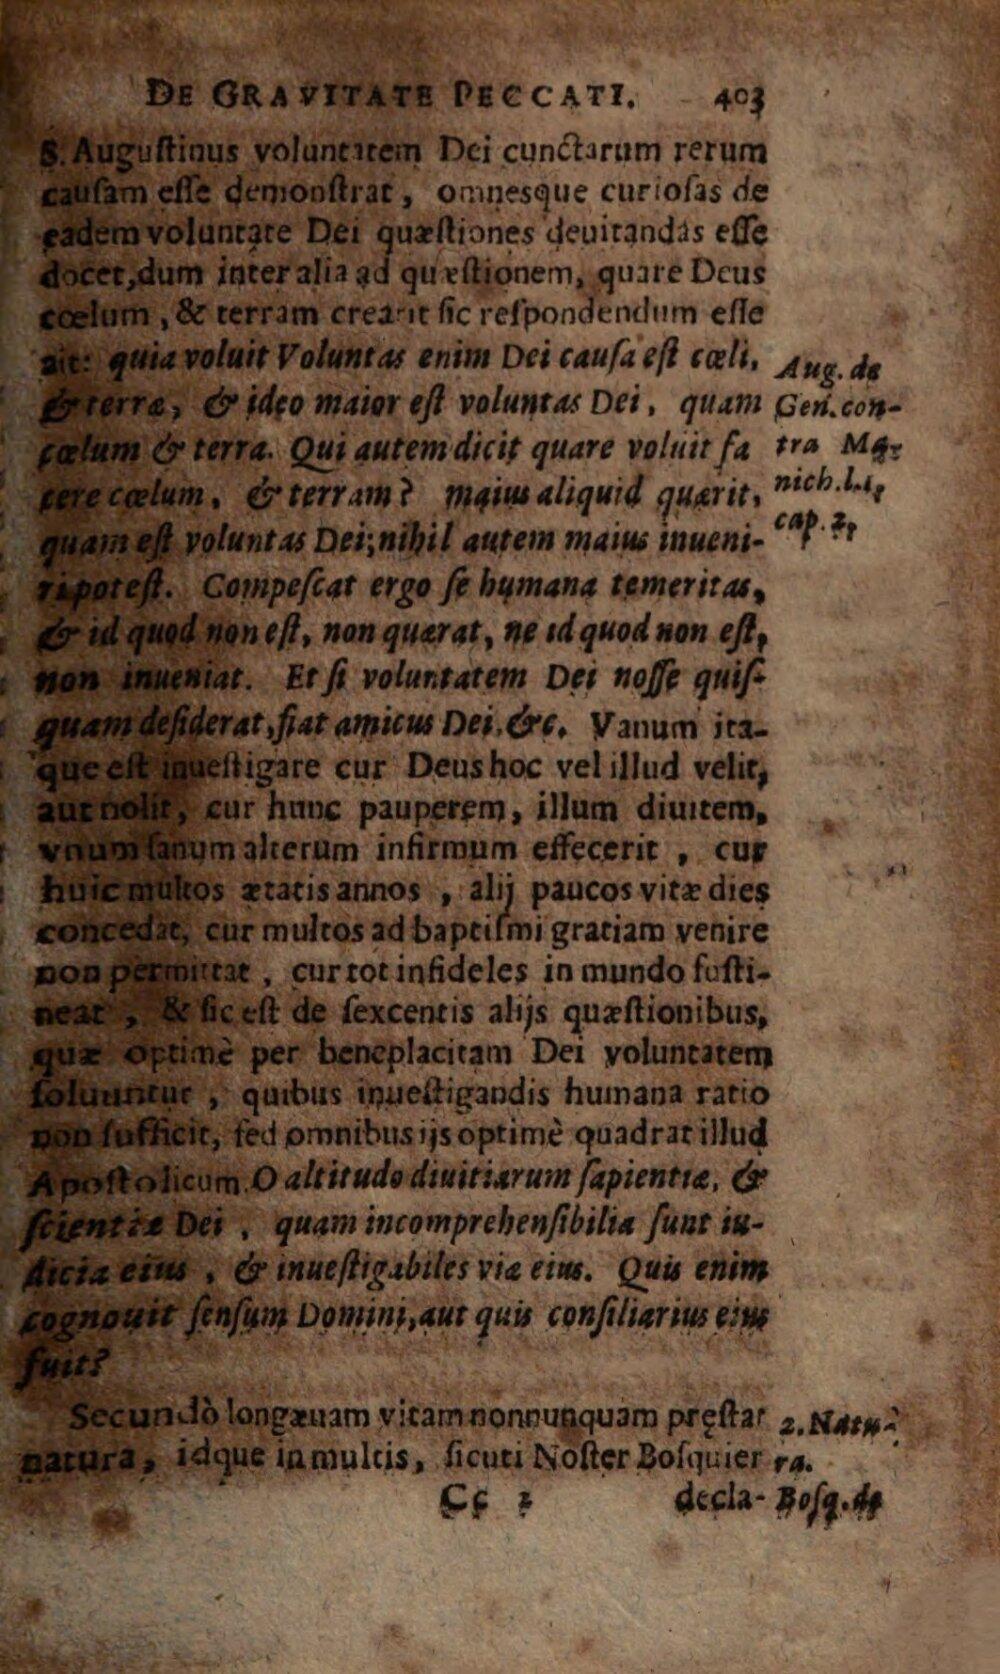 DE GRAVITATE PECCATI. 403
S. Auguſtinus voluntatem Dei cunctarum rerum
cauſam eſſe demonſtrat, omnesque curioſas de
eadem voluntate Dei quæſtiones deuitandas eſſe
docet, dum inter alia ad quæſtionem, quare Deus
cœlum, & terram crearit ſic reſpondendum eſſe
ait: quia voluit Voluntas enim Dei cauſa eſt cœli,
& terræ, & ideo maior eſt voluntas Dei, quam
cœlum & terra. Qui autem dicit quare voluit fa
cere cœlum, & terram? maius aliquid quærit,
quam eſt voluntas Dei; nihil autem maius inueni-
ri poteſt. Compeſcat ergo ſe humana temeritas,
& id quod non eſt, non quærat, ne id quod non eſt,
non inueniat. Et ſi voluntatem Dei noſſe quiſ-
quam deſiderat, fiat amicus Dei. &c. Vanum ita-
que eſt inueſtigare cur Deus hoc vel illud velit,
aut nolit, cur hunc pauperem, illum diuitem,
vnum ſanum alterum infirmum effecerit, cur
huic multos ætatis annos, alij paucos vitæ dies
concedat, cur multos ad baptiſmi gratiam venire
non permittat, cur tot infideles in mundo ſuſti-
neat, & ſic eſt de ſexcentis alijs quæſtionibus,
quæ optimè per beneplacitam Dei voluntatem
ſoluuntur, quibus inueſtigandis humana ratio
non ſufficit, ſed omnibus ijs optimè quadrat illud
Apoſtolicum. O altitudo diuitiarum ſapientiæ, &
ſcientiæ Dei, quam incomprehenſibilia ſunt iu-
dicia eius, & inueſtigabiles viæ eius. Quis enim
cognouit ſenſum Domini, aut quis conſiliarius eius
fuit?
Secundò longæuam vitam nonnunquam pręſtat
natura, idque in multis, ſicuti Noſter Boſquier
Cc 2 decla-
Aug. de
Gen. con-
tra Ma-
nich. l. 1,
cap. 2,
2. Natu-
ra.
Boſq. de